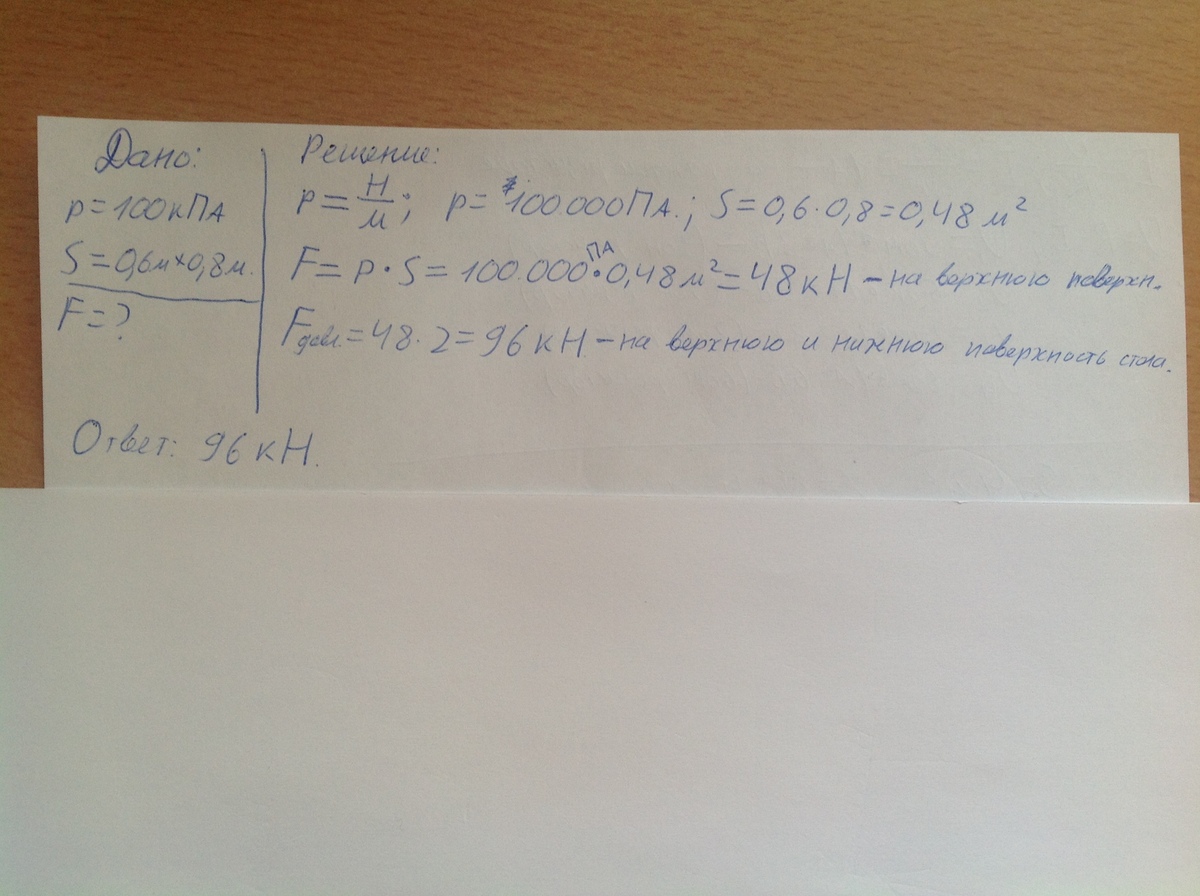 Дано:
p=100кПА
S=0,6м×0,8м.
F=?
Решение:
P=Н/м; p=100.000ПА.; S=0,6·0,8=0,48м²
F=P·S=100.000ПА·0,48м²=48кН–на верхнюю поверхн.
Fдавл.=48·2=96кН–на верхнюю и нижнюю поверхность стола.
Ответ: 96кН.